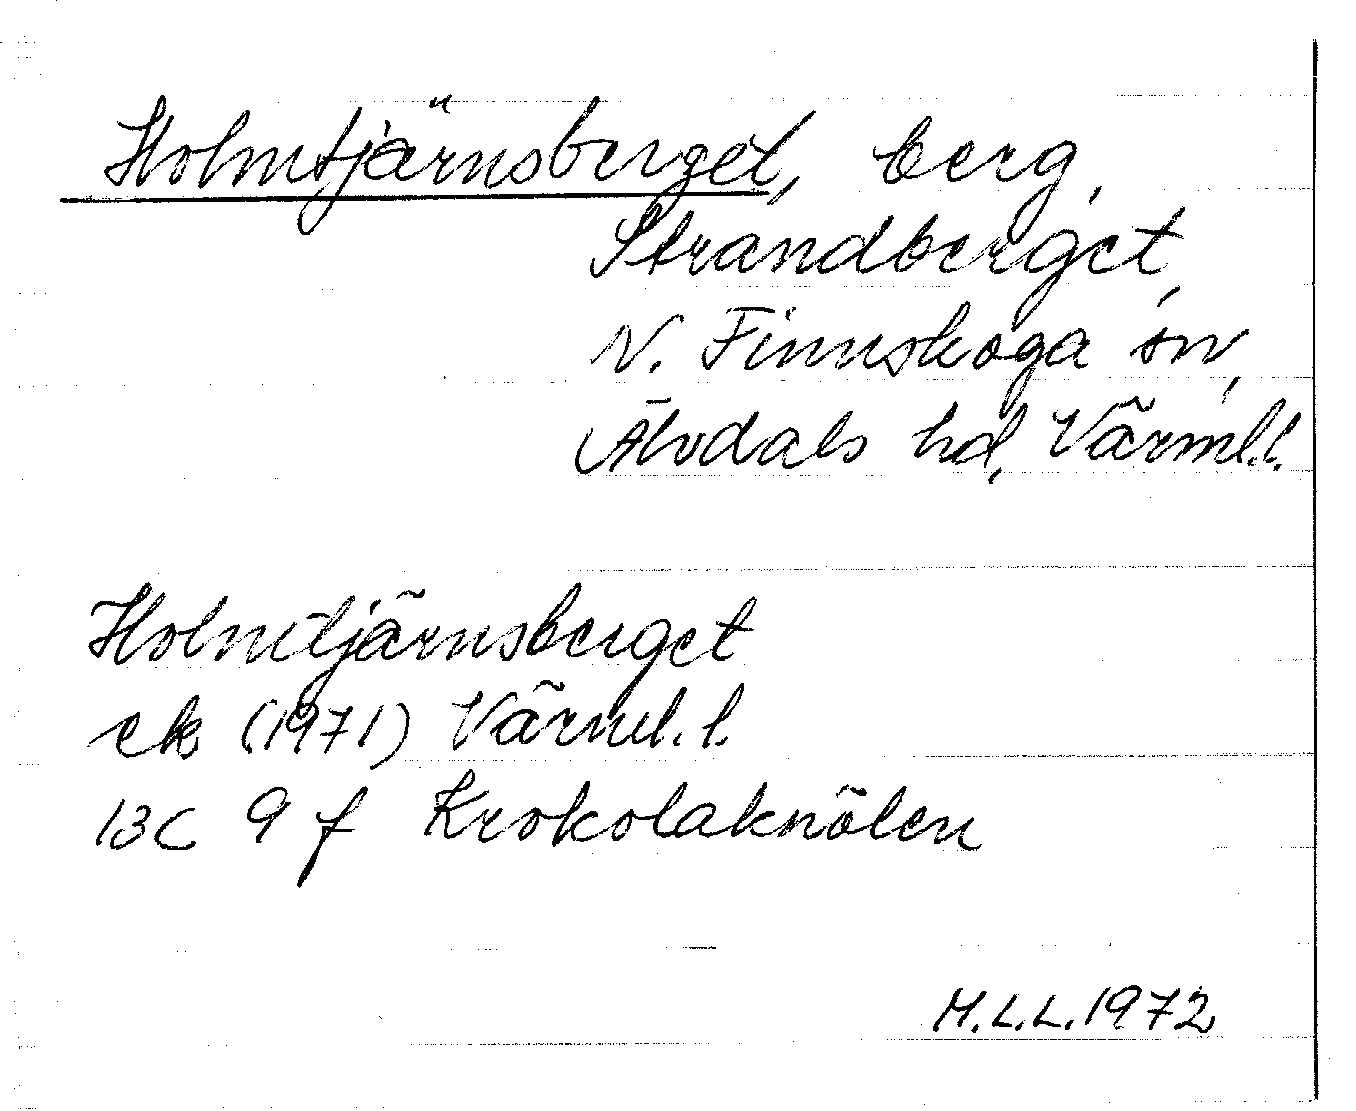 Holmtjärnsberget, berg,
Strandberget,
N. Finnskoga sn,
Älvdals hd, Värml.l.
Holmtjärnsberget
ek (1971) Värml. l.
13C 9 f Krokolaknölen
M.L.L. 1972